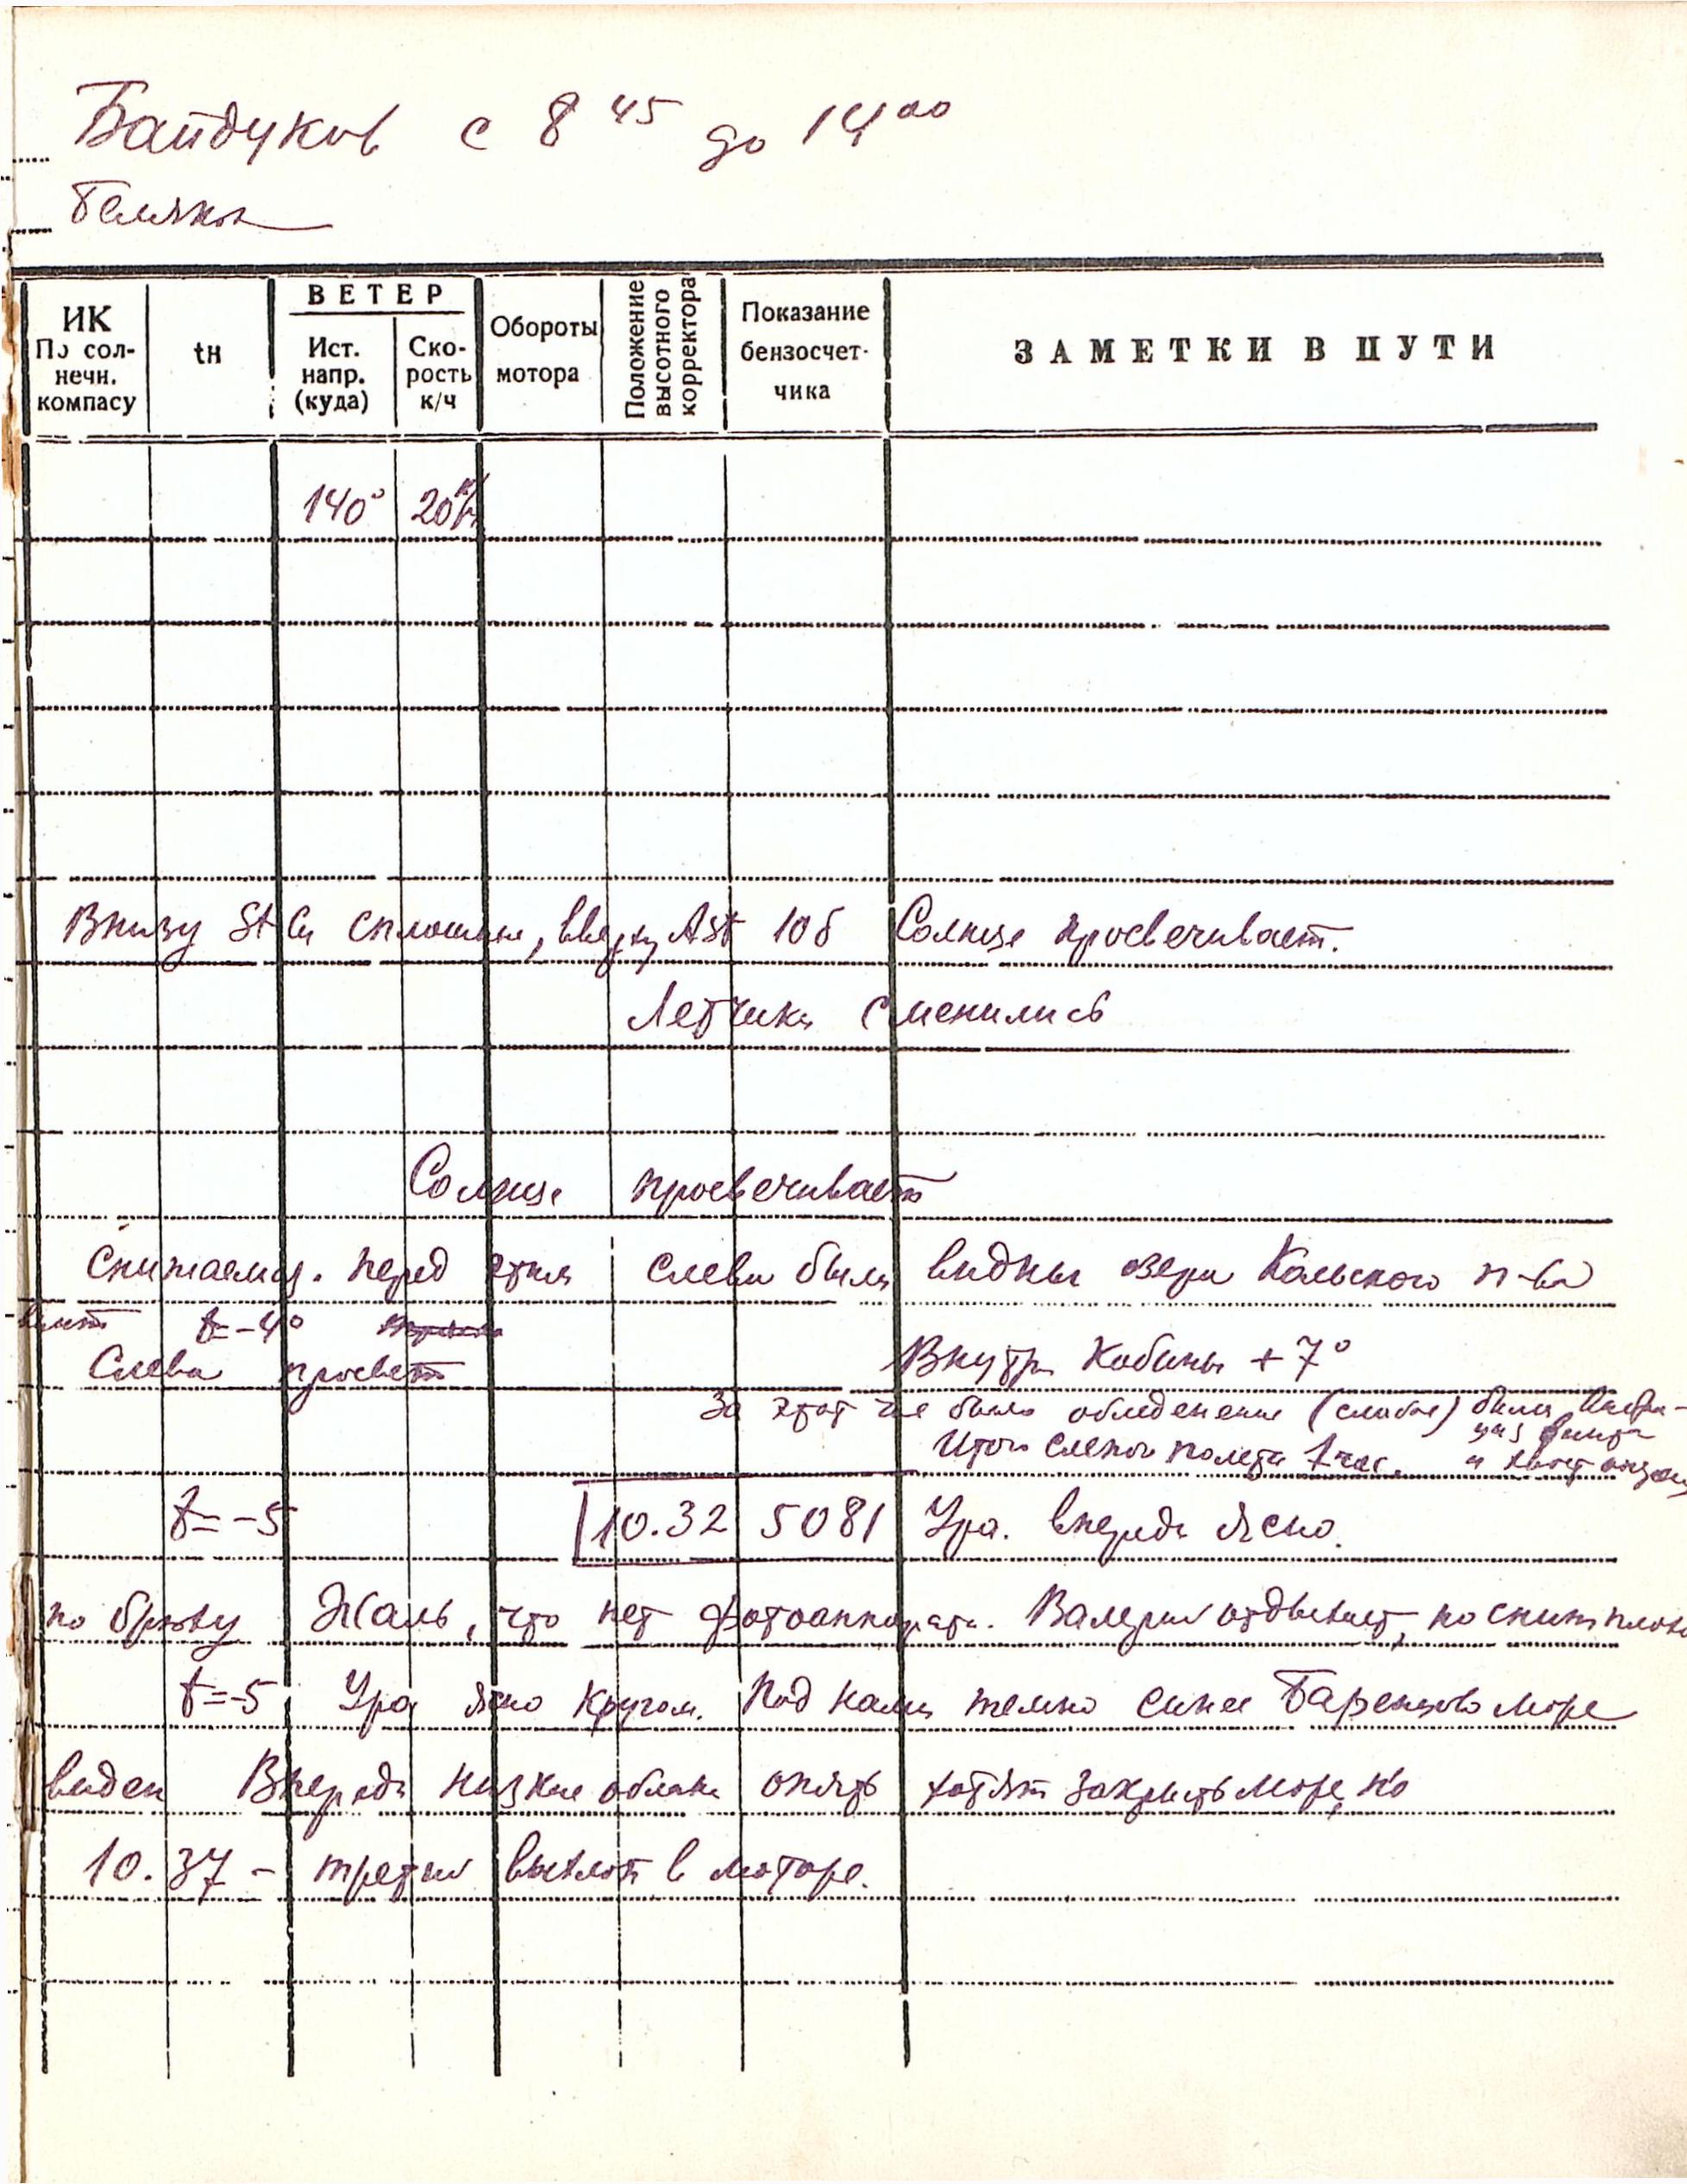 Байдуков с 8 45 до 14 00
Беляков
ИК
По сол-
нечн.
компасу
tн
ВЕТЕР
Ист.
напр.
(куда)
Ско-
рость
к/ч
Обороты
мотора
Положение
высотного
корректора
Показание
бензосчет-
чика
ЗАМЕТКИ В ПУТИ
140° 20 к/ч
Внизу St Cu сплошные, вверху Ast 10б Солнце просвечивает.
Летчики сменились
Солнце просвечивает
Снижаемся. перед этим слева были видны озера Кольского п-ва
винт t=-4°
Слева просвет Внутри кабины +7°
За этот час было обледенение (слабое) были вибра-
ция винта
Итого слепого полета 1 час. и хвост
t=-5 10.32 5081 Ура. впереди ясно.
по брюху Жаль, что нет фотоаппарата. Валерий отдыхает, но спит плохо
t=-5 Ура ясно кругом. Под нами темно синее Баренцово море
виден Впереди низкие облака опять хотят закрыть море, но
10.37 - третий выхлоп в моторе.